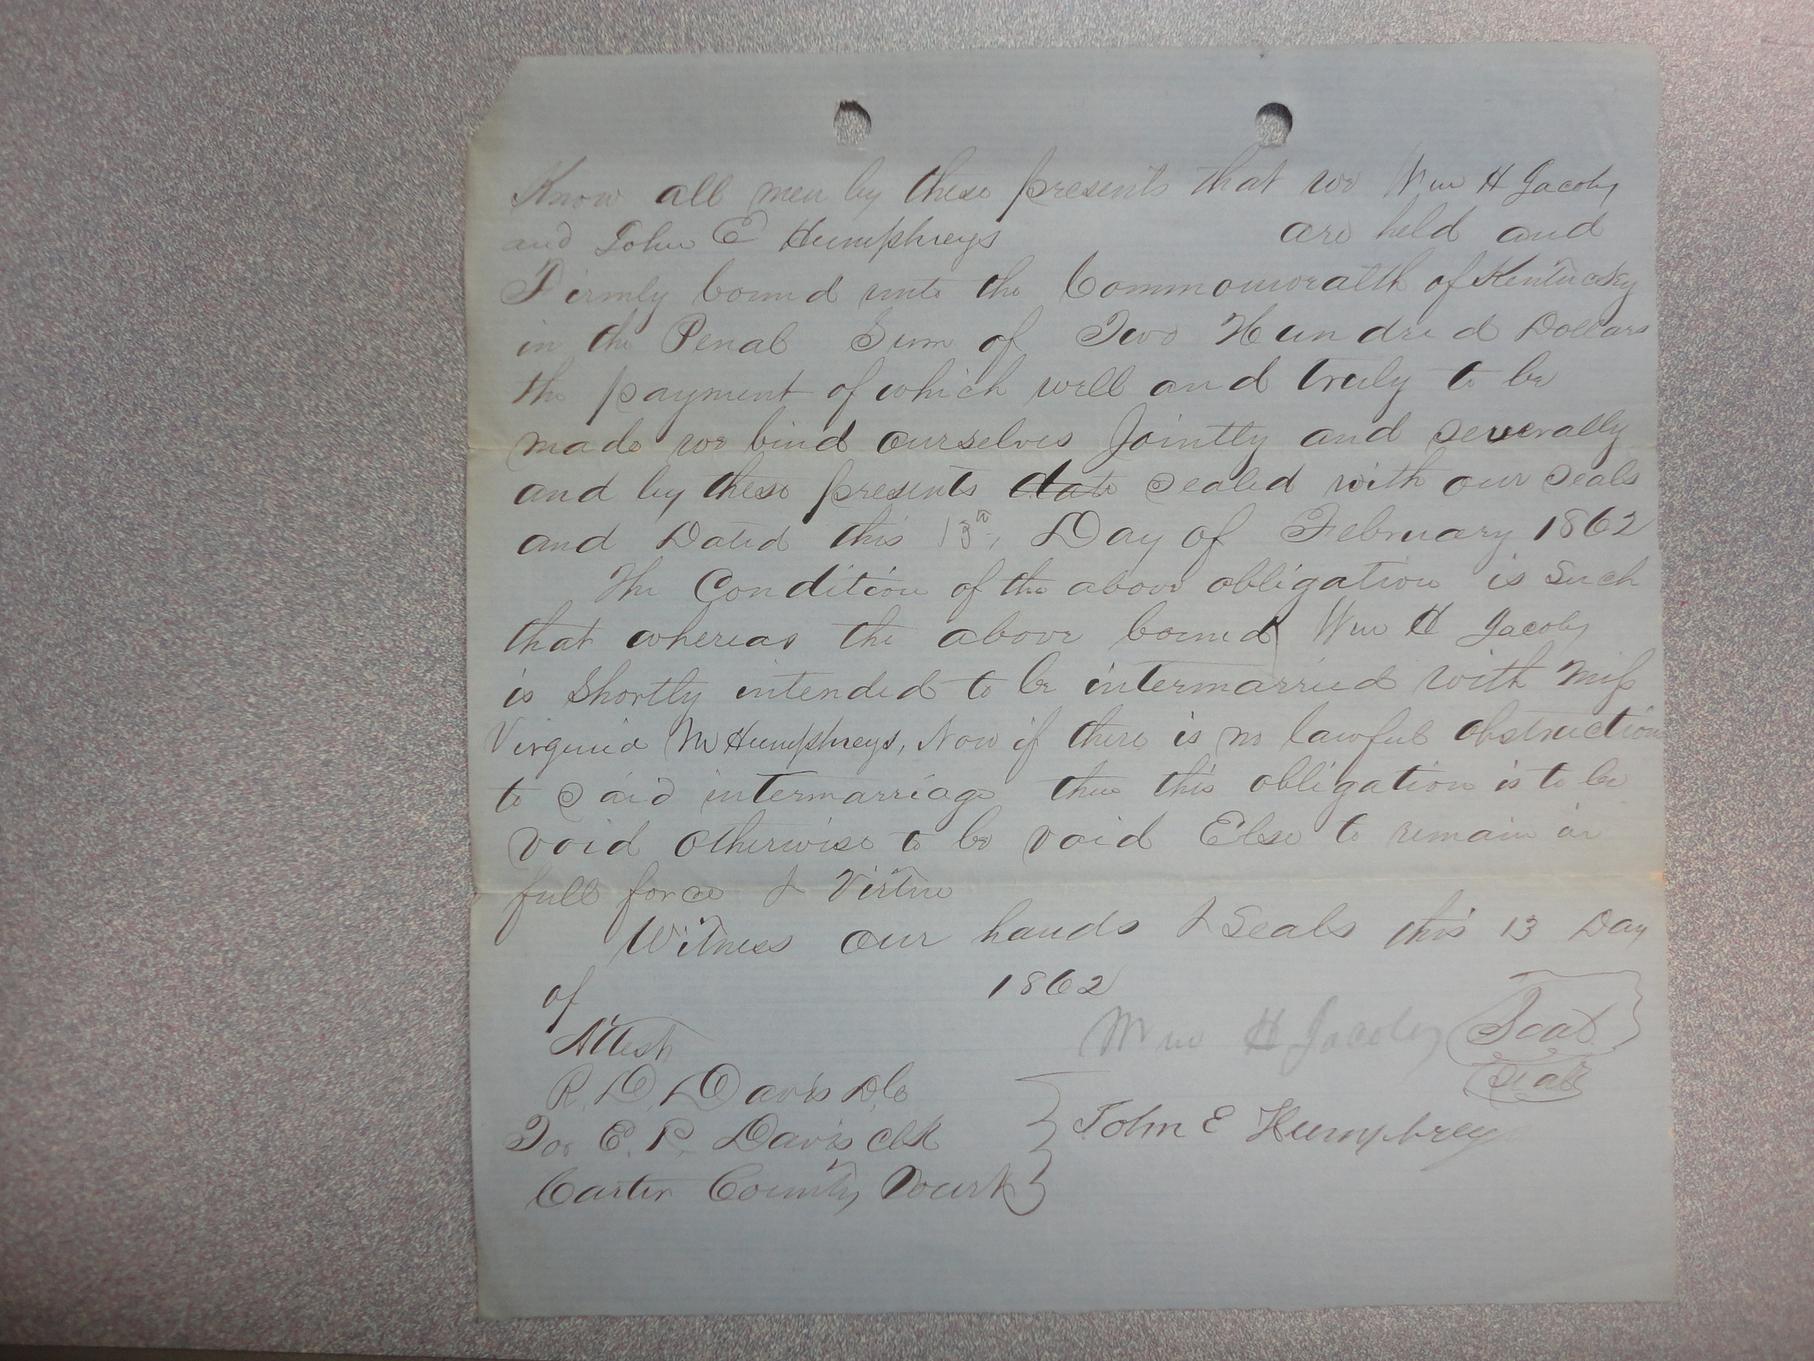 Know all men by these presents that we Wm H Jacoby
and John E Humphreys are held and
Firmly bound unto the Commonwealth of Kentucky
in the Penal Sum of Two Hundred Dollars
the payment of which well and truly to be
made we bind ourselves Jointly and severally
and by these presents date sealed with our seals
and Dated this 13th, Day of February 1862
The Condition of the above obligation is Such
that whereas the above bound Wm H Jacoby
is Shortly intended to be intermarried with Miss
Virginia M Humphreys, Now if there is no lawful obstruction
to said intermarriage then this obligation is to be
void otherwise to be void Else to remain in
full force & Virtue
Witness our hands & Seals this 13 Day
of 1862
Attest
Wm H Jacoby Seal
Seal
R. D. Davis D.C
For E. P. Davis Clk
John E Humphreys
Carter County Court